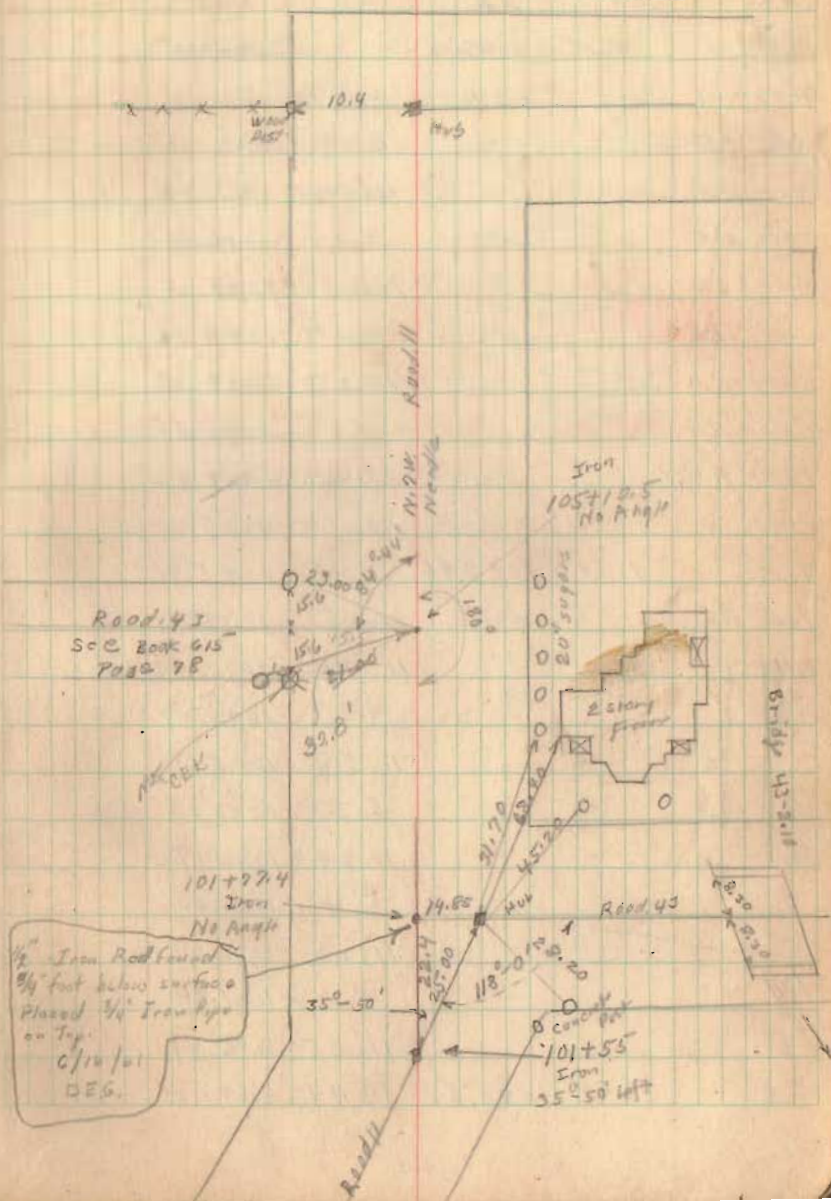 10.4
Wood
Post
Hub
Road 11
N. 2 W.
Needle
Iron
105+10.5
No Angle
23.00
15.6
84°
180°
20" sugars
Road 43
See Book 615
Page 78
15.6
32.8'
2 story
Frame
Bridge 43-2.11
31.70
63.90
45.20
101+77.4
Iron
No Angle
14.85
Hub
Road 43
22.4
25.00
118°
28.20
35°-50'
Concrete
Post
101+55
Iron
35°-50' Left
1/2" Iron Rod found
3/4 foot below surface
Placed 3/4" Iron Pipe
on Top.
DEG.
Road 11